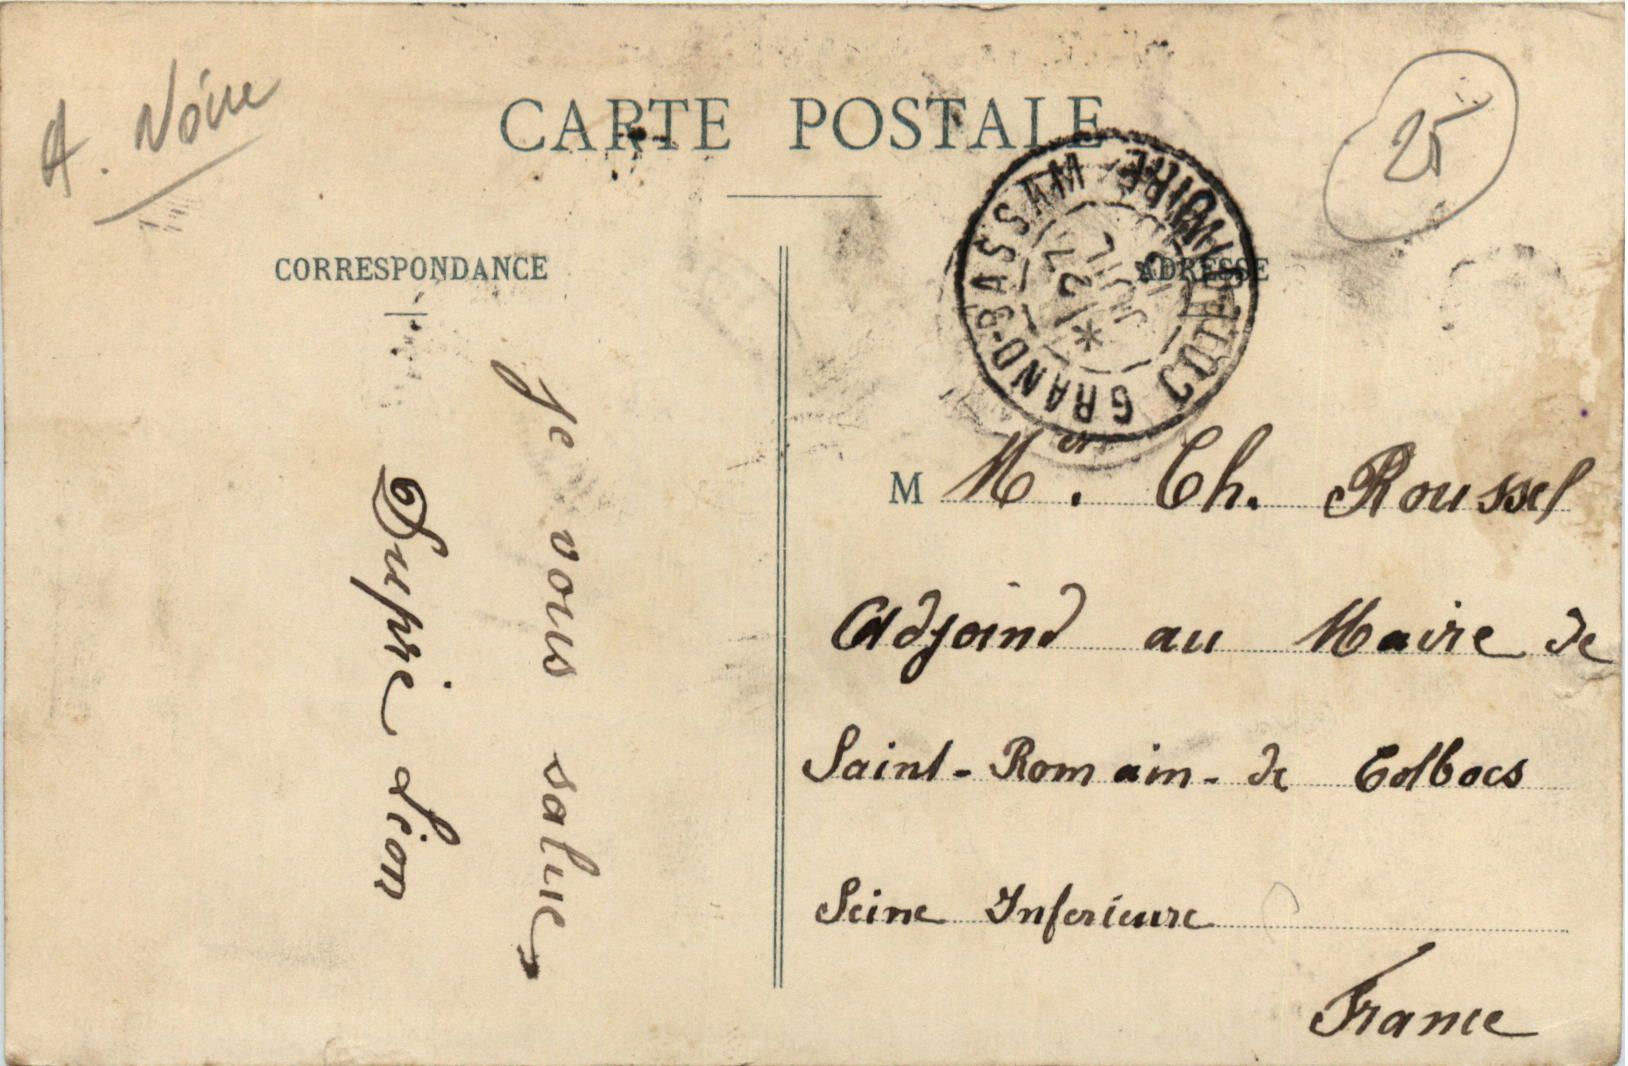 A. Noire
CARTE POSTALE
25
CORRESPONDANCE
ADRESSE
GRAND-BASSAM
COTE D'IVOIRE
27
JUIL
*
Je vous salue
Dupré Léon
M Mr. Ch. Roussel
Adjoind au Maire de
Saint-Romain-de Colbocs
Seine Inferieure
France